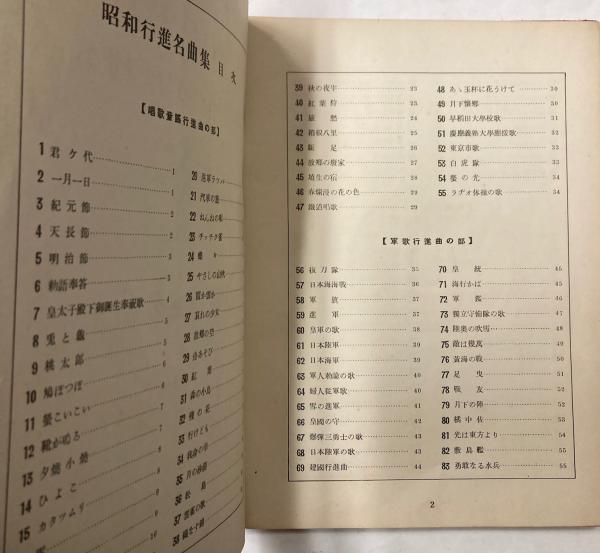 昭和行進名曲集 目次
【唱歌童謡行進曲の部】
1 君ケ代 1
2 一月一日 1
3 紀元節 2
4 天長節 2
5 明治節 2
6 勅語奉答
7 皇太子殿下御誕生奉祝歌 4
8 兎と龜 5
9 桃太郎 5
10 鳩ぽつぽ 6
11 螢こいこい
12 靴が鳴る 7
13 夕燒小燒
14 ひよこ
15 カタツムリ
20
21 汽車の旅
22 ねんねの
23 チツチク
24 蜂
25 やさしの
26
27 哀れの少女
28
29 舟あそび
30 紅葉
31 森の小鳥
32
33 行けども
34 我身の
35 月の砂漠
36 松島
37
38
39 秋の夜半 23
40 紅葉狩 23
41 離愁 24
42 箱根八里 25
43 駈足 26
44 故郷の廢家 27
45 埴生の宿 28
46 春爛漫の花の色 29
47 鐵道唱歌 29
48 あゝ玉杯に花うけて 30
49 月下懷郷 30
50 早稻田大學校歌 31
51 慶應義塾大學應援歌 32
52 東京市歌 32
53 白虎隊 33
54 螢の光 34
55 ラヂオ体操の歌 34
【軍歌行進曲の部】
56 抜刀隊 35
57 日本海海戰 36
58 軍旗 37
59 進軍 38
60 皇軍の歌 38
61 日本陸軍 39
62 日本海軍 39
63 軍人勅諭の歌 40
64 婦人從軍歌 40
65 雪の進軍 41
66 皇國の守 42
67 爆彈三勇士の歌 43
68 日本陸軍の歌 43
69 建國行進曲 44
70 皇統 45
71 海行かば 45
72 軍艦 46
73 獨立守備隊の歌 47
74 陸奥の吹雪 48
75 敵は幾萬 49
76 黃海の戰 50
77 足曳 51
78 戰友 52
79 月下の陣 52
80 橘中佐 53
81 光は東方より 54
82 敷島艦 55
83 勇敢なる水兵 55
2